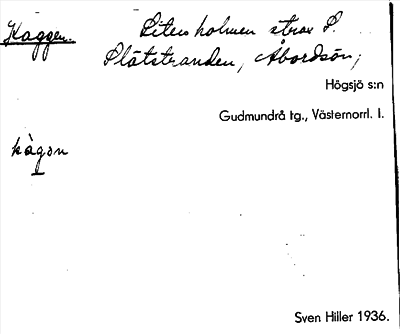 Kaggen. Liten holmen strax S.
Slåtstranden, Åbordsön;
Högsjö s:n
Gudmundrå tg., Västernorrl. l.
kàgon
Sven Hiller 1936.